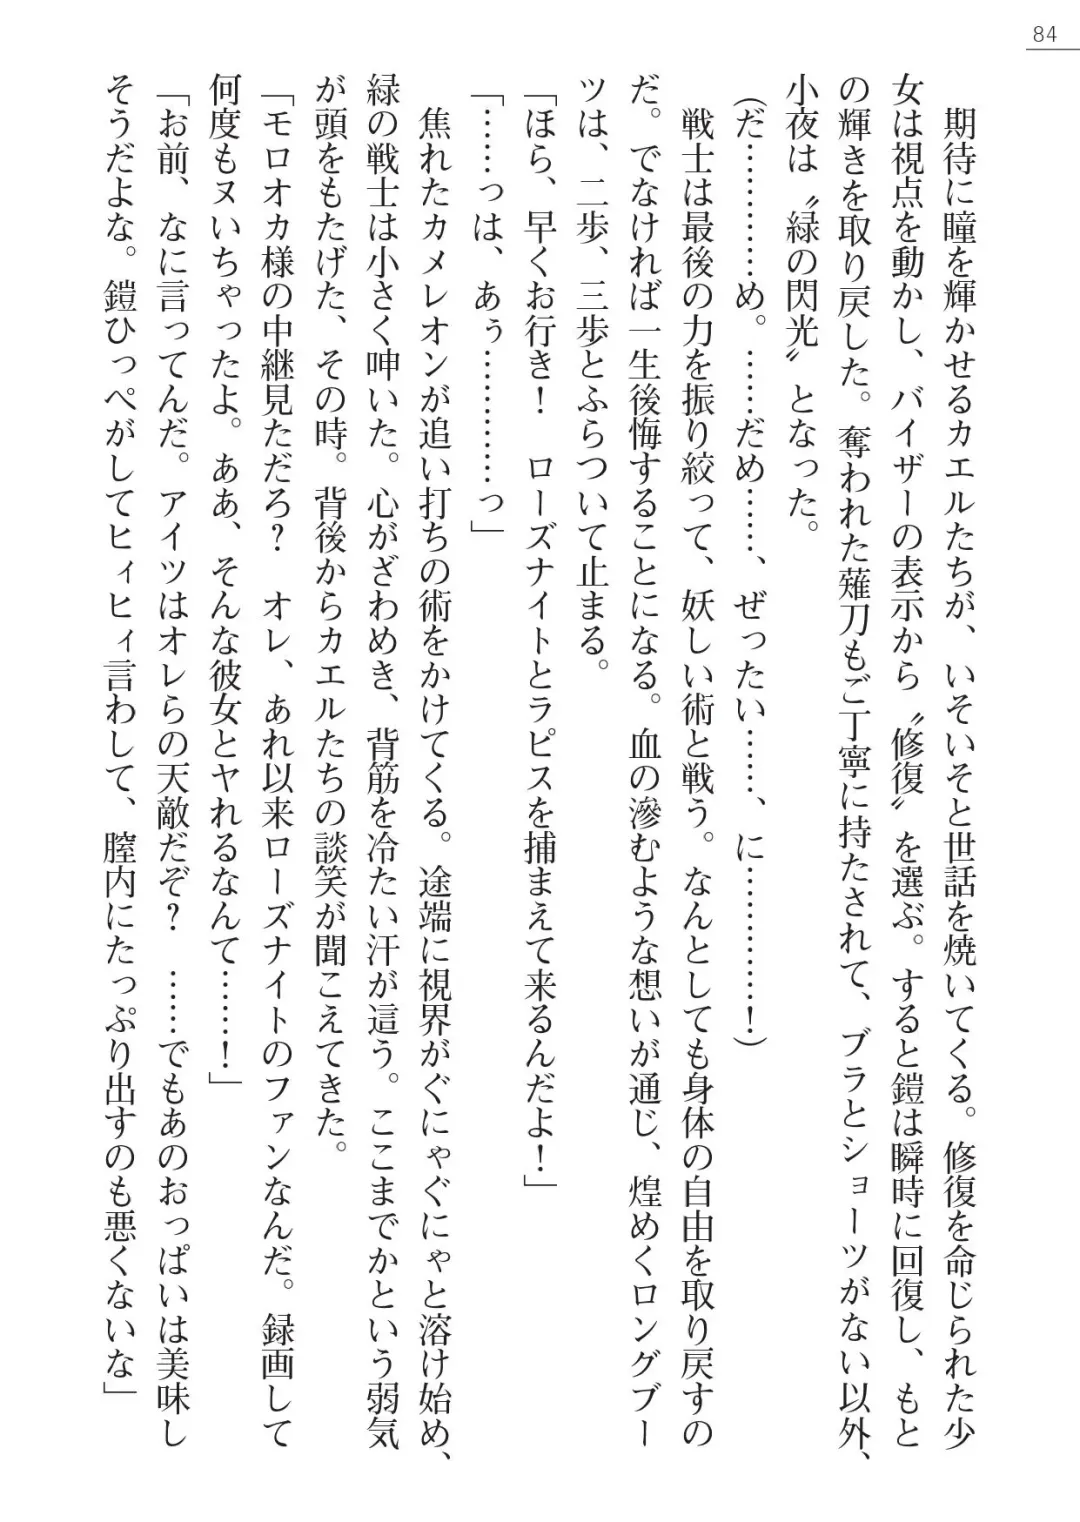 84
期待に瞳を輝かせるカエルたちが、いそいそと世話を焼いてくる。修復を命じられた少
女は視点を動かし、バイザーの表示から〝修復〟を選ぶ。すると鎧は瞬時に回復し、もと
の輝きを取り戻した。奪われた薙刀もご丁寧に持たされて、ブラとショーツがない以外、
小夜は〝緑の閃光〟となった。
(だ…………め。……だめ……、ぜったい……、に…………！)
戦士は最後の力を振り絞って、妖しい術と戦う。なんとしても身体の自由を取り戻すの
だ。でなければ一生後悔することになる。血の滲むような想いが通じ、煌めくロングブー
ツは、二歩、三歩とふらついて止まる。
「ほら、早くお行き！　ローズナイトとラピスを捕まえて来るんだよ！」
「……っは、あぅ…………っ」
焦れたカメレオンが追い打ちの術をかけてくる。途端に視界がぐにゃぐにゃと溶け始め、
緑の戦士は小さく呻いた。心がざわめき、背筋を冷たい汗が這う。ここまでかという弱気
が頭をもたげた、その時。背後からカエルたちの談笑が聞こえてきた。
「モロオカ様の中継見ただろ？　オレ、あれ以来ローズナイトのファンなんだ。録画して
何度もヌいちゃったよ。ああ、そんな彼女とヤれるなんて……！」
「お前、なに言ってんだ。アイツはオレらの天敵だぞ？　……でもあのおっぱいは美味し
そうだよな。鎧ひっぺがしてヒィヒィ言わして、膣内にたっぷり出すのも悪くないな」